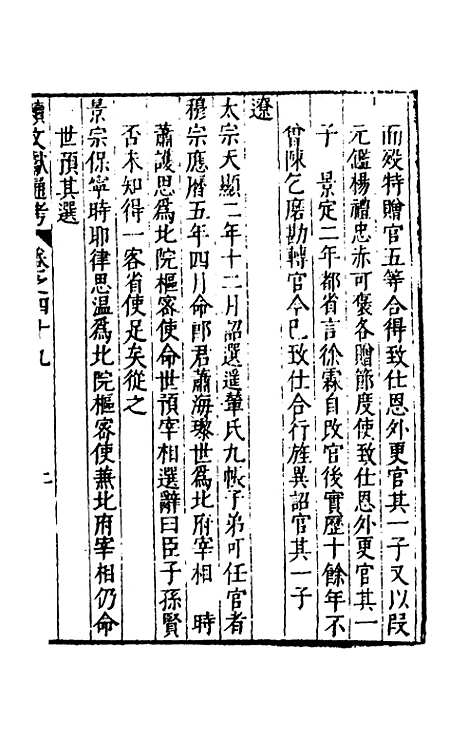 而殁特贈官五等合得致仕恩外更官其一子又以段
元鑑楊禮忠赤可褒各贈節度使致仕恩外更官其一
子　景定二年都省言徐霖自改官後實歷十餘年不
曾陳乞磨勘轉官今已致仕合行旌異詔官其一子
遼
太宗天顯二年十二月詔選遥輦氏九帳子弟可任官者
穆宗應曆五年四月命郎君蕭海瓈世爲北府宰相　時
蕭護思爲北院樞密使命世預宰相選辭曰臣子孫賢
否未知得一客省使足矣從之
景宗保寧時耶律思温爲北院樞密使兼北府宰相仍命
世預其選
續文獻通考　卷之四十九